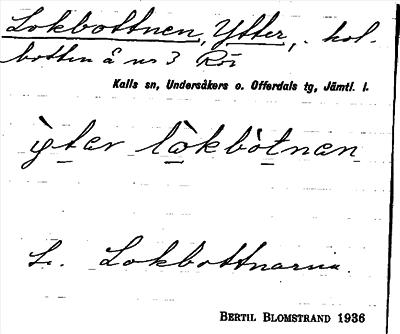 Lokbottnen, Ytter, kol-
botten å nr 3 Röi
Kalls sn, Undersåkers o. Offerdals tg, Jämtl. l.
ỳter lòkbòtnen
L. Lokbottnarna.
BERTIL BLOMSTRAND 1936